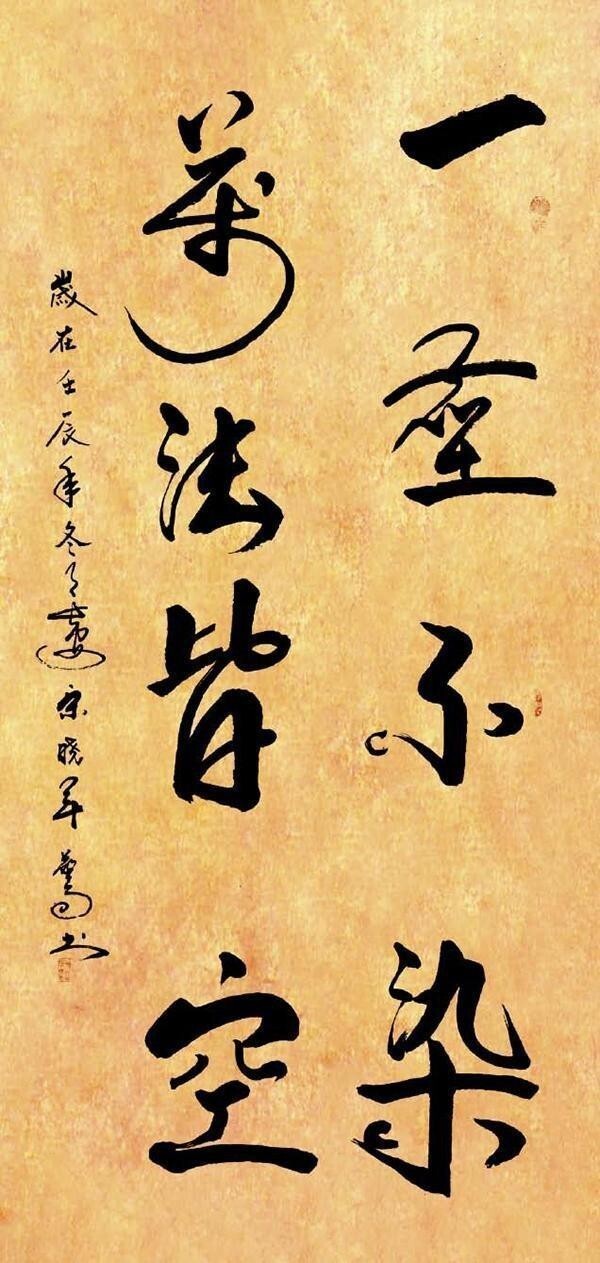 一塵不染
萬法皆空
歲在壬辰年冬月宋晓军书